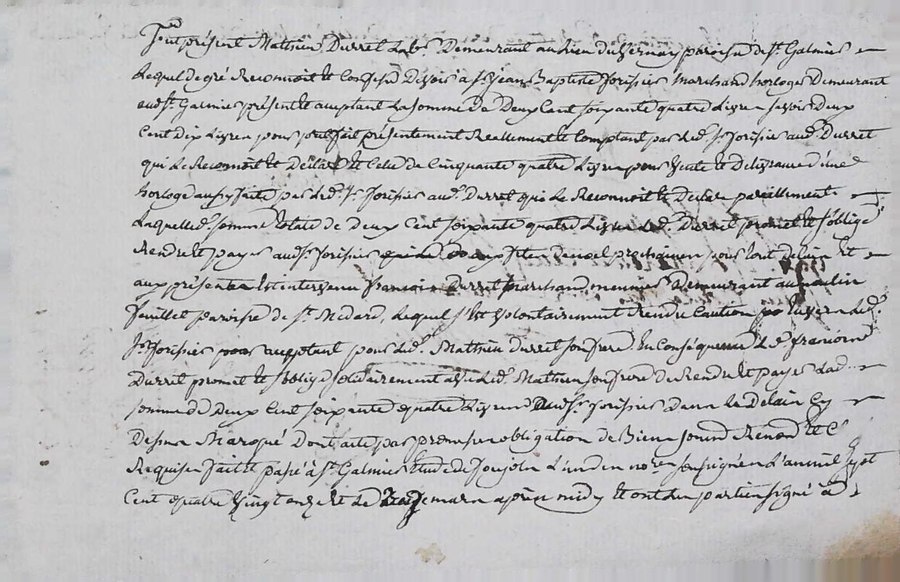 fut présent Mathieu Durret Labr Demeurant au Lieu du Vernay paroisse de st Galmier
Lequel de gré Reconnoit et Confesse Devoir a sr Jean Baptiste forissier Marchand horloger Demeurant
aud. st Galmier présent et acceptant La somme de Deux Cent soixante quatre Livres savoir Deux
Cent Dix Livres pour prest fait présentement Reellement et Comptant par Led. sr forissier aud. Durret
qui Le Reconnoit et Déclare et Celle de Cinquante quatre Livres pour Vente et Délivrance d'une
horloge aussy faite par Led. sr forissier aud. Durret qui Le Reconnoit et Declare pareillement
Laquelle d. somme totale de deux Cent soixante quatre Livres Led. Durret promet et s'oblige
Rendre et payer aud. sr forissier aux fetes de noel prochaines pour tout delain et
aux présentes Est intervenu francois Durret Marchand meunier Demeurant au moulin
feuillet paroisse de st Medard, Lequel s'Est Volontairement Rendu Caution Envers Led.
sr forissier acceptant pour Led. Mathieu Durret son frere En Conséquence Led. francois
Durret promet et s'oblige solidairement avec Led. Mathieu son frere de Rendre et payer Lad.
somme de Deux Cent soixante quatre Livres aud. sr forissier Dans Le Délain Cy
Dessus Marqué Dont acte par promesse obligation de Biens soumd Renond et C.
Requises fait et passé à st Galmier Etude de L'un des nores soussignés L'an mil sept
Cent quatre Vingt onze et Le mars après midy Et ont Les parties signé à